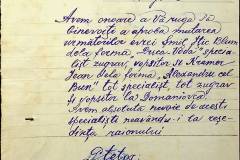 Avem onoare a Vă ruga să
binevoiți a aproba mutarea
următorilor evrei Smil Ițic Blum
dela ferma "Gruca-Nova" specia-
list zugrav, vopsitor și Kramer
Jean dela ferma "Alexandru cel
Bun" tot specialist, tot zugrav
și vopsitor la Domaniovca.
Avem absolută nevoie de acești
specialiști neavându-i la reșe-
dința raionului